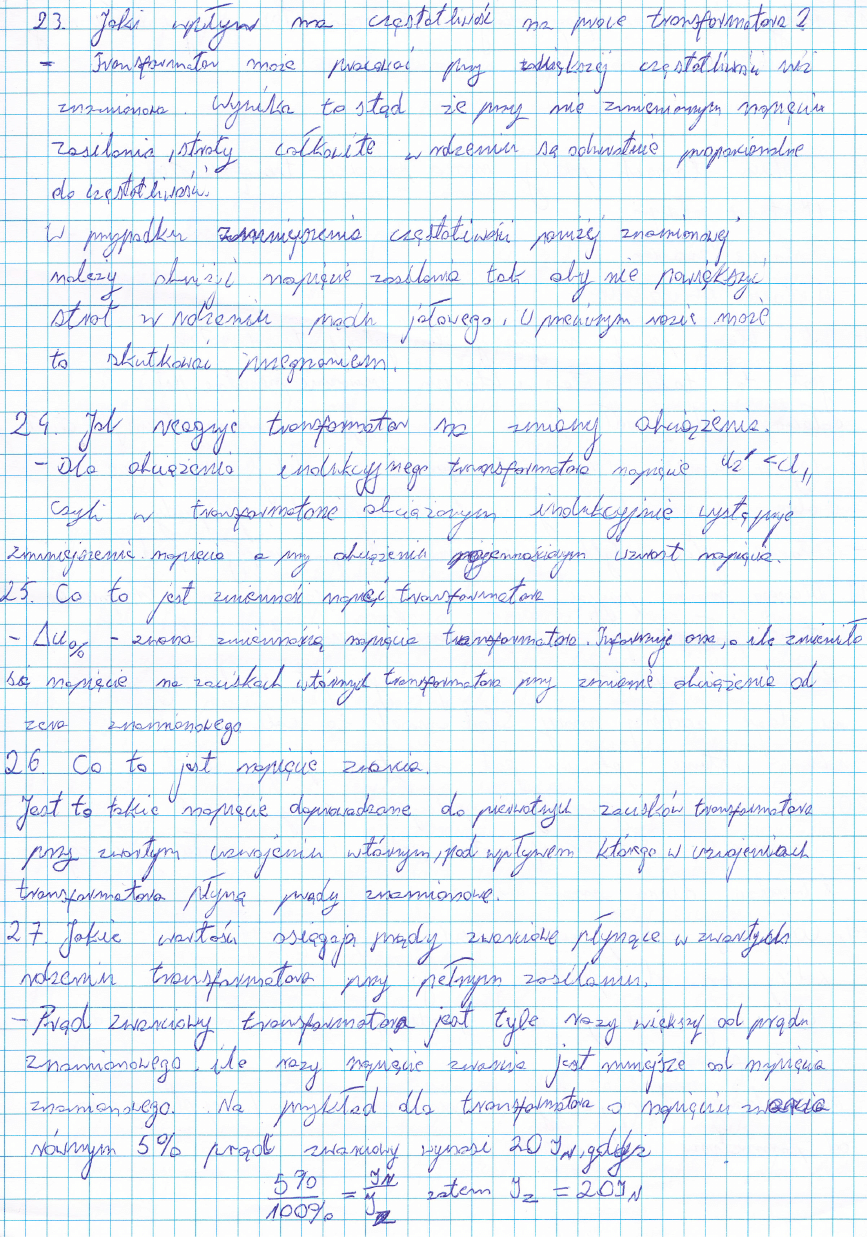 23. Jaki wpływ ma częstotliwość na prace transformatora?
- Transformator może pracować przy zwiększej częstotliwości niż
znamionowa. Wynika to stąd że przy nie zmienionym napięciu
zasilania, straty całkowite w rdzeniu są odwrotnie proporcionalne
do częstotliwości.
W przypadku zmniejszenia częstotliwości poniżej znamionowej
należy obniżyć napięcie zasilania tak aby nie powiększyć
strat w rdzeniu prądu jałowego. W przeciwnym razie może
to skutkować przegrzaniem.
24. Jak reaguje transformator na zmiany obciążenia.
- Dla obciążenia indukcyjnego transformatora napięcie U₂' < U₁,
czyli w transformatorze obciążonym indukcyjnie występuje
zmniejszenie napięcia a przy obciążeniu pojemnościowym wzrost napięcia.
25. Co to jest zmienność napięć transformatora
- Δu% - zwana zmiennością napięcia transformatora. Informuje ona, o ile zmieniło
się napięcie na zaciskach wtórnych transformatora przy zmianie obciążenia od
zera znamionowego
26. Co to jest napięcie zwarcia.
Jest to takie napięcie doprowadzane do pierwotnych zacisków transformatora
przy zwartym uzwojeniu wtórnym, pod wpływem którego w uzwojeniach
transformatora płyną prądy znamionowe.
27 Jakie wartości osiągają prądy zwarciowe płynące w zwartych
rdzeniu transformatora przy pełnym zasilaniu.
- Prąd zwarciowy transformatora jest tyle razy większy od prądu
znamionowego ile razy napięcie zwarcia jest mniejsze od napięcia
znamionowego. Na przykład dla transformatora o napięciu zwarcia
równym 5% prąd zwarciowy wynosi 20 I_N, gdyż
5%/100% = I_N/I_Z zatem I_Z = 20I_N